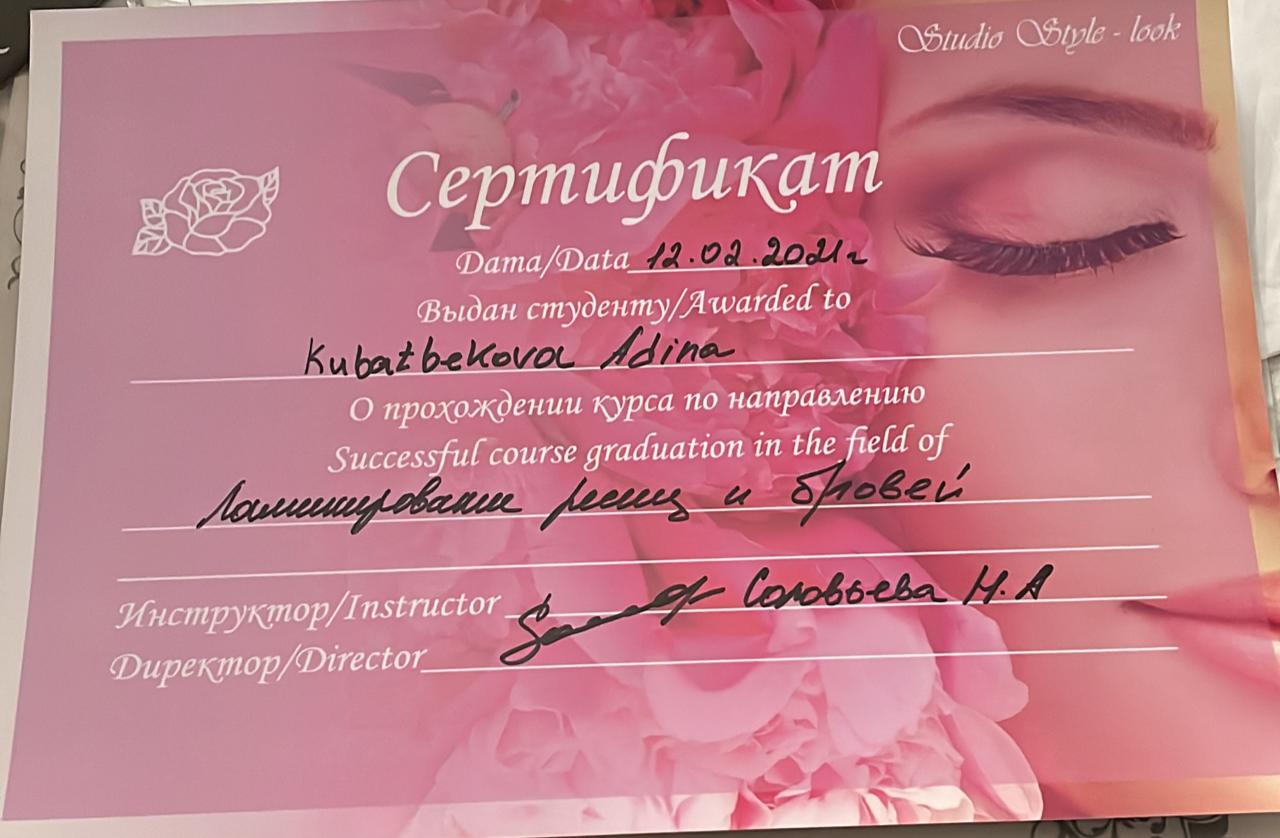 Studio Style - look
Сертификат
Дата/Data 12.02.2021г
Выдан студенту/Awarded to
Kubatbekova Adina
О прохождении курса по направлению
Successful course graduation in the field of
Ламинирование ресниц и бровей
Инструктор/Instructor Соловьева Н.А
Директор/Director